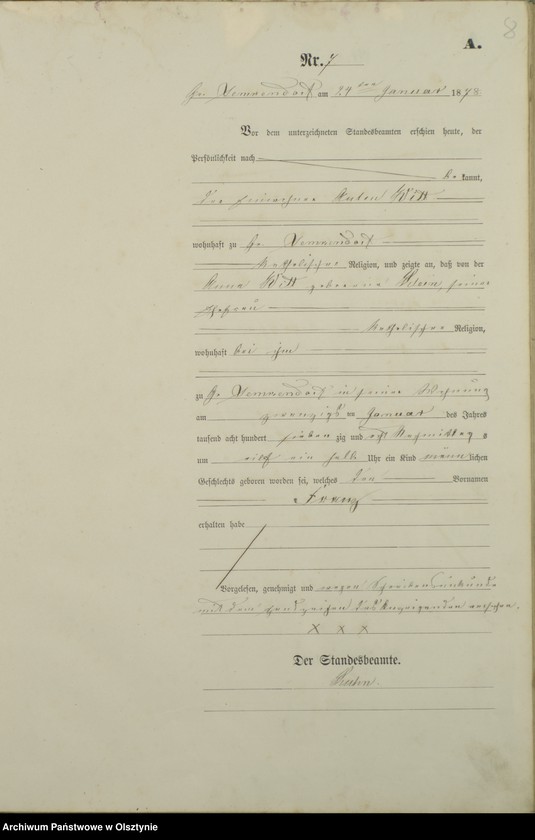 8
A.
Nr. 7
Gr. am 29ten Januar 1878.
Vor dem unterzeichneten Standesbeamten erschien heute, der
Persönlichkeit nach
be kannt,
der Einwohner Witt
wohnhaft zu Gr.
katholischer Religion, und zeigte an, daß von der
Anna Witt geborene seiner
Ehefrau
katholischer Religion,
wohnhaft bei ihm
zu Gr. in seiner Wohnung
am zwanzigs ten Januar des Jahres
tausend acht hundert sieben zig und acht Nachmittags
um ein halb Uhr ein Kind männ lichen
Geschlechts geboren worden sei, welches den Vornamen
Franz
erhalten habe
Vorgelesen, genehmigt und wegen Schreibensunkunde
mit den Handzeichen des Anzeigenden versehen.
X X X
Der Standesbeamte.
Archiwum Państwowe w Olsztynie